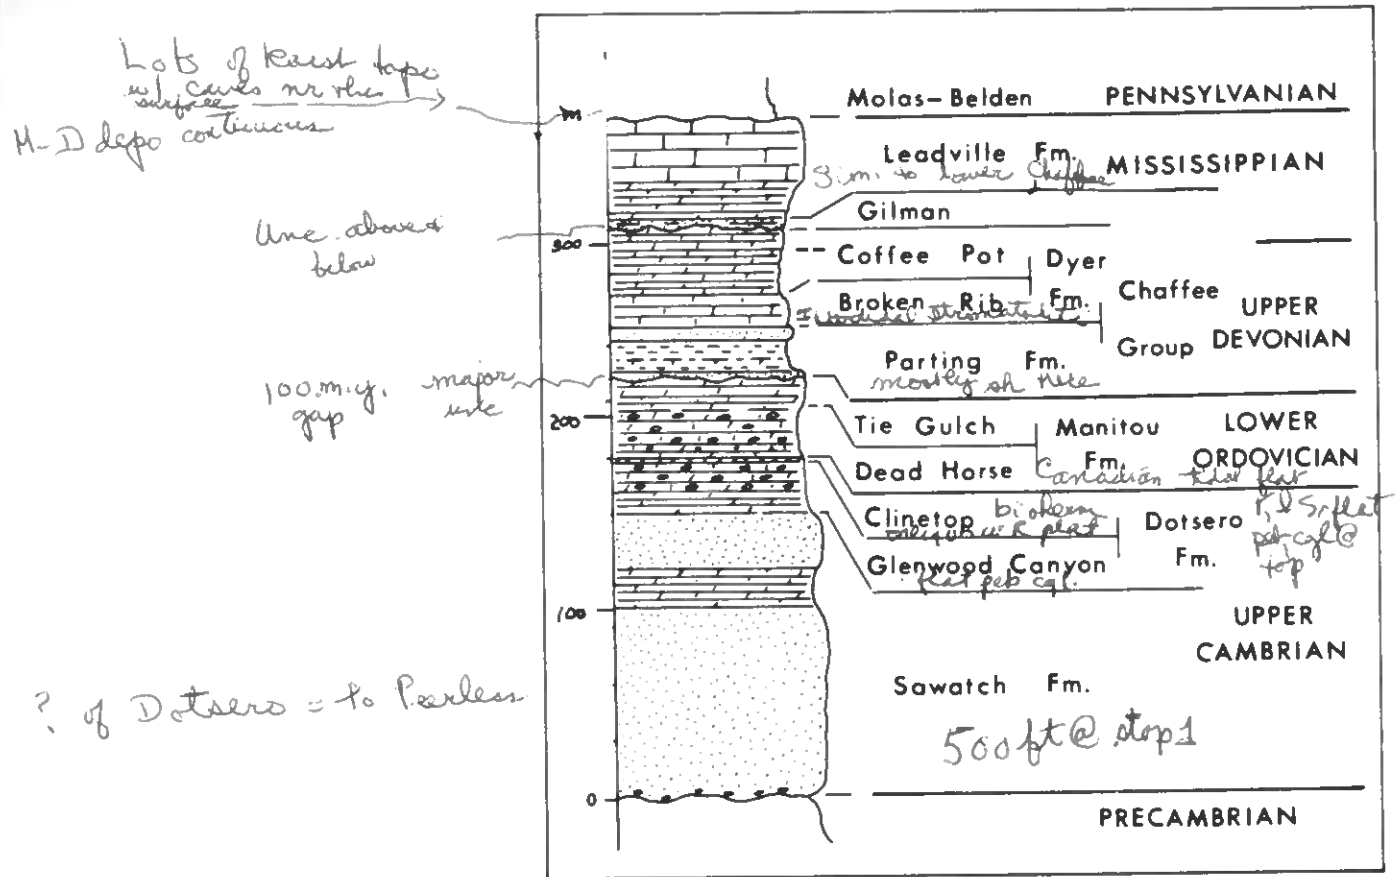 Lots of karst topo
w/ caves nr this
surface
M-D depo continuous
Unc. above &
below
100 m.y. major
gap unc
? of Dotsero = to Peerless
m
300
200
100
0
Molas-Belden PENNSYLVANIAN
Leadville Fm. MISSISSIPPIAN
Sim. to lower Chaffee
Gilman
Coffee Pot Dyer
Broken Rib Fm. Chaffee UPPER
stromatolite
Group DEVONIAN
Parting Fm.
mostly sh here
Tie Gulch Manitou LOWER
Fm. ORDOVICIAN
Dead Horse Canadian tidal flat
Clinetop bioherm Dotsero
flat
Glenwood Canyon Fm. top
flat peb cgl.
UPPER
CAMBRIAN
Sawatch Fm.
500 ft @ stop 1
PRECAMBRIAN